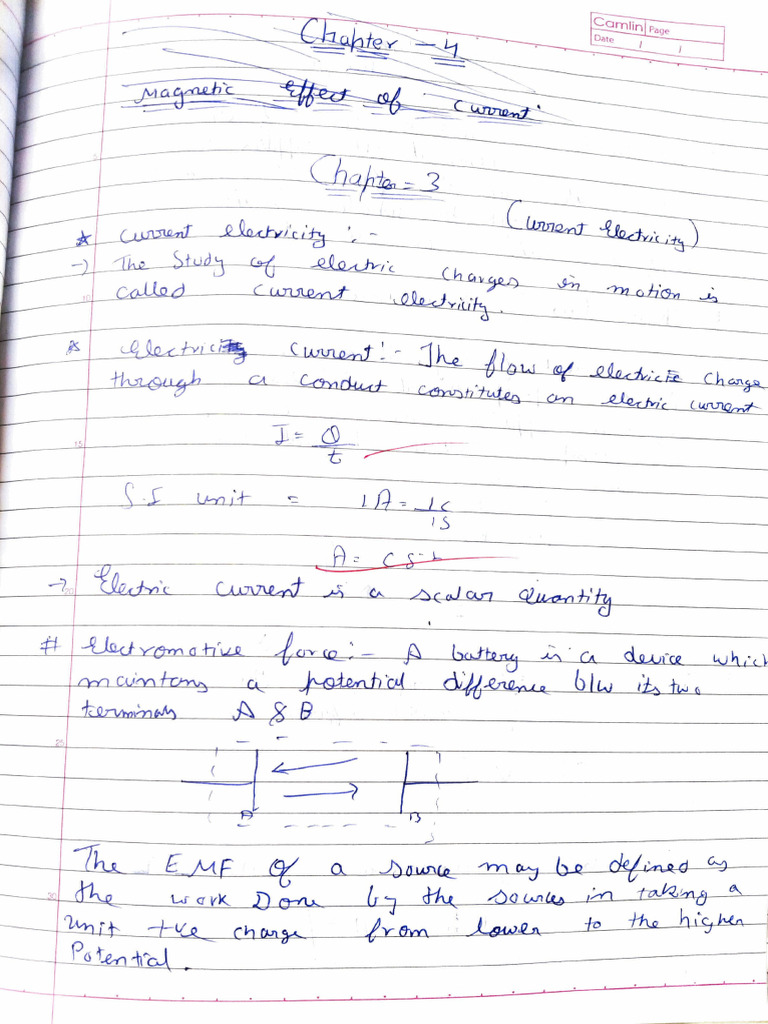 Camlin Page
Date / /
Chapter - 4
Magnetic Effect of current
Chapter = 3
(Current Electricity)
* Current electricity :-
→ The Study of electric charges in motion is
called current electricity.
* Electric current :- The flow of electric charge
through a conduct constitutes an electric current
I = Q
t
S.I unit = 1A = 1C
1S
A = C S-1
→ Electric current is a scalar quantity
# Electromotive force :- A battery is a device which
maintans a potential difference b/w its two
terminals A & B
A B
The EMF of a source may be defined as
the work Done by the sources in taking a
unit +ve charge from lower to the higher
Potential.